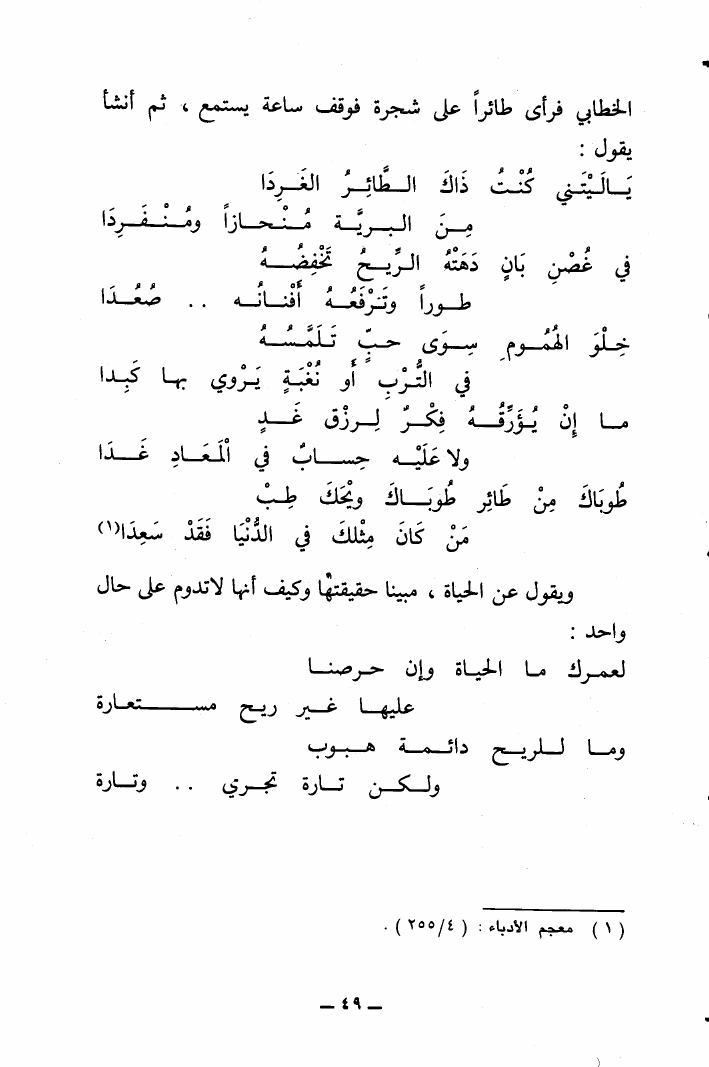 الخطابي فرأى طائراً على شجرة فوقف ساعة يستمع ، ثم أنشأ
يقول :
يَــالَيْتَني كُنْــتُ ذَاكَ الــطَّائِــرُ الغَــرِدَا
مِــنَ الــبــريَّــة مُــنْــحــازاً ومُــنْــفَــرِدَا
في غُصْنِ بَانٍ دَهَتْهُ الــرِّيــحُ تَخْفِضُــهُ
طــوراً وتَــرْفَعُــهُ أَفْنــانُــه .. صُعُــدَا
خِلْوَ الهُمُــومِ سِــوَى حــبٍّ تَــلَمَّسُــهُ
في التُّرْبِ أو نُغْبَةٍ يَــرْوي بهــا كَبِــدا
مــا إنْ يُــؤَرِّقُــهُ فِكْــرٌ لِــرزْق غَــدٍ
ولا عَلَيْــه حِســابٌ في الْمَعَــادِ غَــدَا
طُوبَاكَ مِنْ طَائِر طُوبَــاكَ ويْحَكَ طِبْ
مَنْ كَانَ مِثْلكَ في الدُّنْيَا فَقَدْ سَعِدَا(١)
ويقول عن الحياة ، مبينا حقيقتها وكيف أنها لاتدوم على حال
واحد :
لعمــرك مــا الحيــاة وإن حــرصنــا
عليهــا غــير ريــح مســتعارة
ومــا لــلريــح دائــمــة هــبــوب
ولــكــن تــارة تجــري .. وتــارة
(١) معجم الأدباء : (٢٥٥/٤) .
ــ ٤٩ ــ